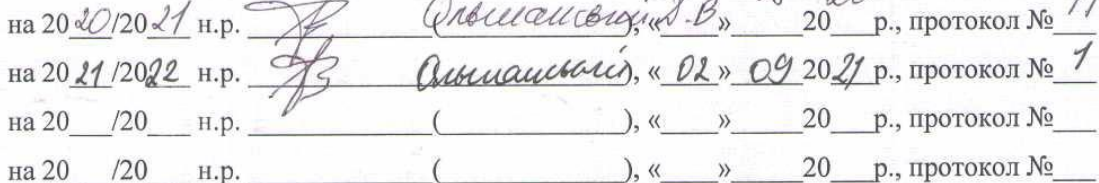 на 2020/2021 н.р. (Ольшанський Д.В), «___»______20___р., протокол № 11
на 2021/2022 н.р. (Ольшанський), «02» 09 2021 р., протокол № 1
на 20___/20___ н.р. ______________(____________), «____»______20___р., протокол №___
на 20___/20___ н.р. ______________(____________), «____»______20___р., протокол №___